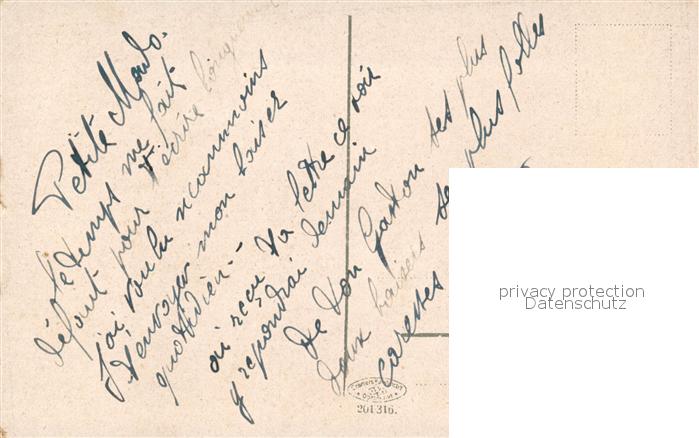 Petite Mado.
le temps me fait
défaut pour t'écrire longuement
j'ai voulu néanmoins
t'envoyer mon baiser
quotidien --
ai reçu ta lettre ce soir
y répondrai demain
De ton Gaston ses plus
doux baisers ses plus folles
caresses
201316.
privacy protection
Datenschutz